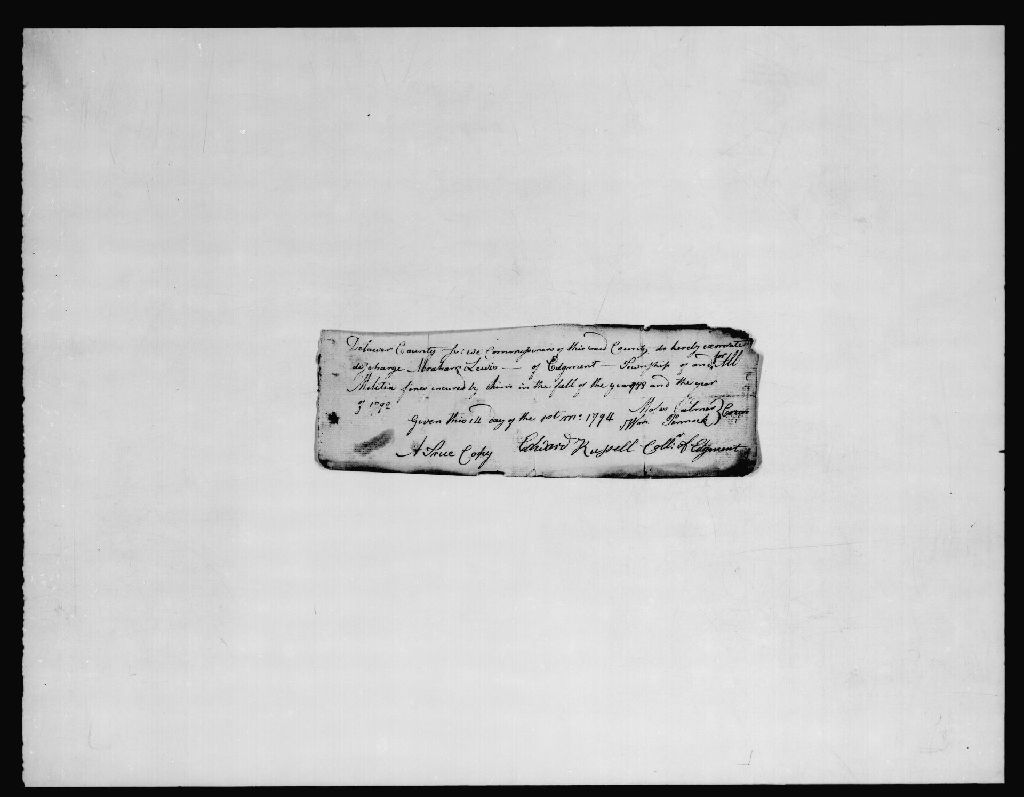 Delawar County ss: we Commissioners of this said County do hereby exonorate
discharge Abraham Lewis — of Edgment — Township of and for All
Militia fines incured by him in the fall of the year and the year
of 1792
Given this 14 day of the 10th mo 1794 Moses
Pennock
A True Copy Edward Russell Collr of Edgment